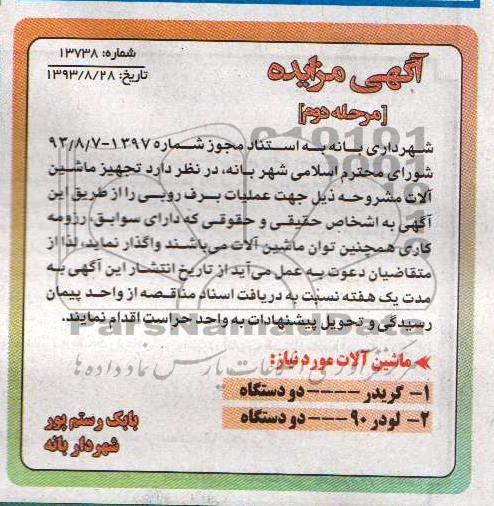 آگهی مزایده
شماره: ۱۳۷۳۸
تاریخ: ۱۳۹۳/۸/۲۸
[مرحله دوم]
شهرداری بانه به استناد مجوز شماره ۱۳۹۷-۹۳/۸/۷
شورای محترم اسلامی شهر بانه، در نظر دارد تجهیز ماشین
آلات مشروحه ذیل جهت عملیات برف روبی را از طریق این
آگهی به اشخاص حقیقی و حقوقی که دارای سوابق، رزومه
کاری همچنین توان ماشین آلات می‌باشند واگذار نماید، لذا از
متقاضیان دعوت به عمل می‌آید از تاریخ انتشار این آگهی به
مدت یک هفته نسبت به دریافت اسناد مناقصه از واحد پیمان
رسیدگی و تحویل پیشنهادات به واحد حراست اقدام نمایند.
ParsNamadData
ماشین آلات مورد نیاز:
مرکز فرآوری اطلاعات پارس نماد داده ها
۱- گریدر ---- دو دستگاه
۲- لودر ۹۰ --- دو دستگاه
بابک رستم پور
شهردار بانه